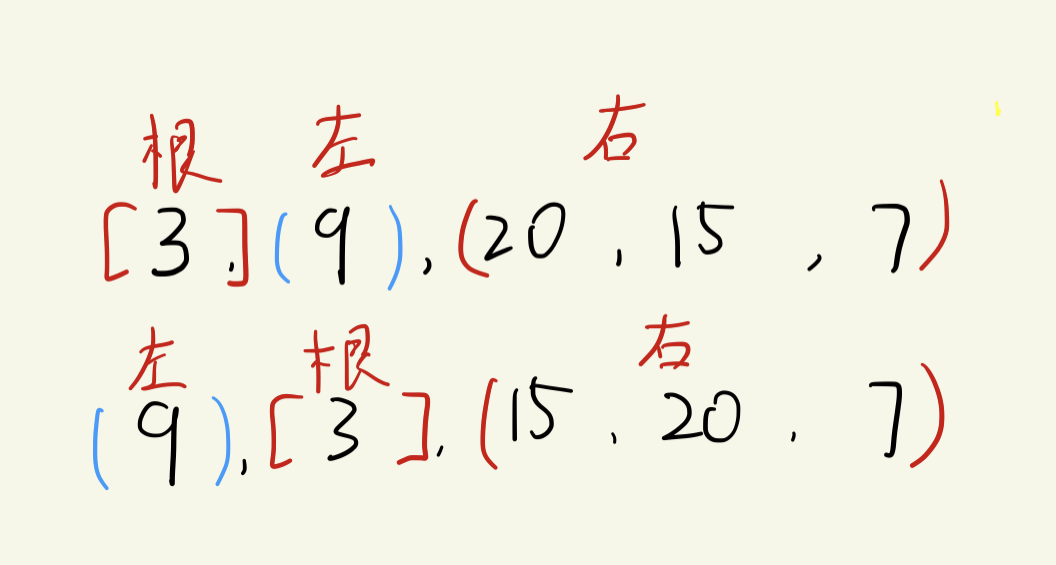 根 左 右
[3,](9),(20,15,7)
左 根 右
(9),[3],(15,20,7)